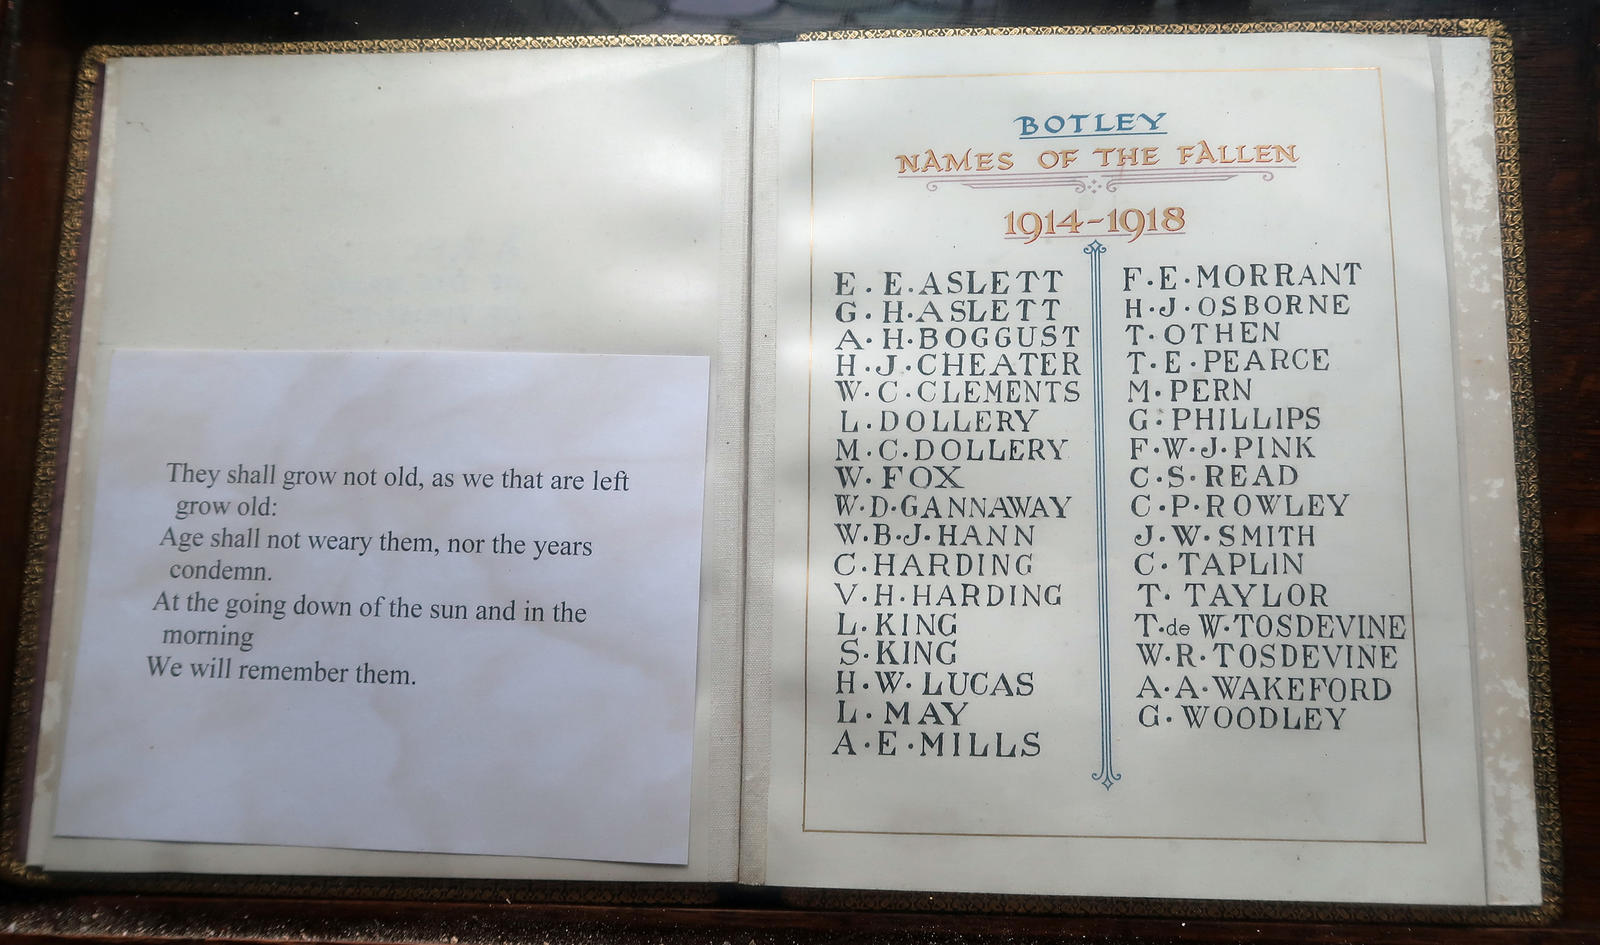 They shall grow not old, as we that are left
grow old:
Age shall not weary them, nor the years
condemn.
At the going down of the sun and in the
morning
We will remember them.
BOTLEY
NAMES OF THE FALLEN
1914-1918
E. E. ASLETT
G. H. ASLETT
A. H. BOGGUST
H. J. CHEATER
W. C. CLEMENTS
L. DOLLERY
M. C. DOLLERY
W. FOX
W. D. GANNAWAY
W. B. J. HANN
C. HARDING
V. H. HARDING
L. KING
S. KING
H. W. LUCAS
L. MAY
A. E. MILLS
F. E. MORRANT
H. J. OSBORNE
T. OTHEN
T. E. PEARCE
M. PERN
G. PHILLIPS
F. W. J. PINK
C. S. READ
C. P. ROWLEY
J. W. SMITH
C. TAPLIN
T. TAYLOR
T. de W. TOSDEVINE
W. R. TOSDEVINE
A. A. WAKEFORD
G. WOODLEY